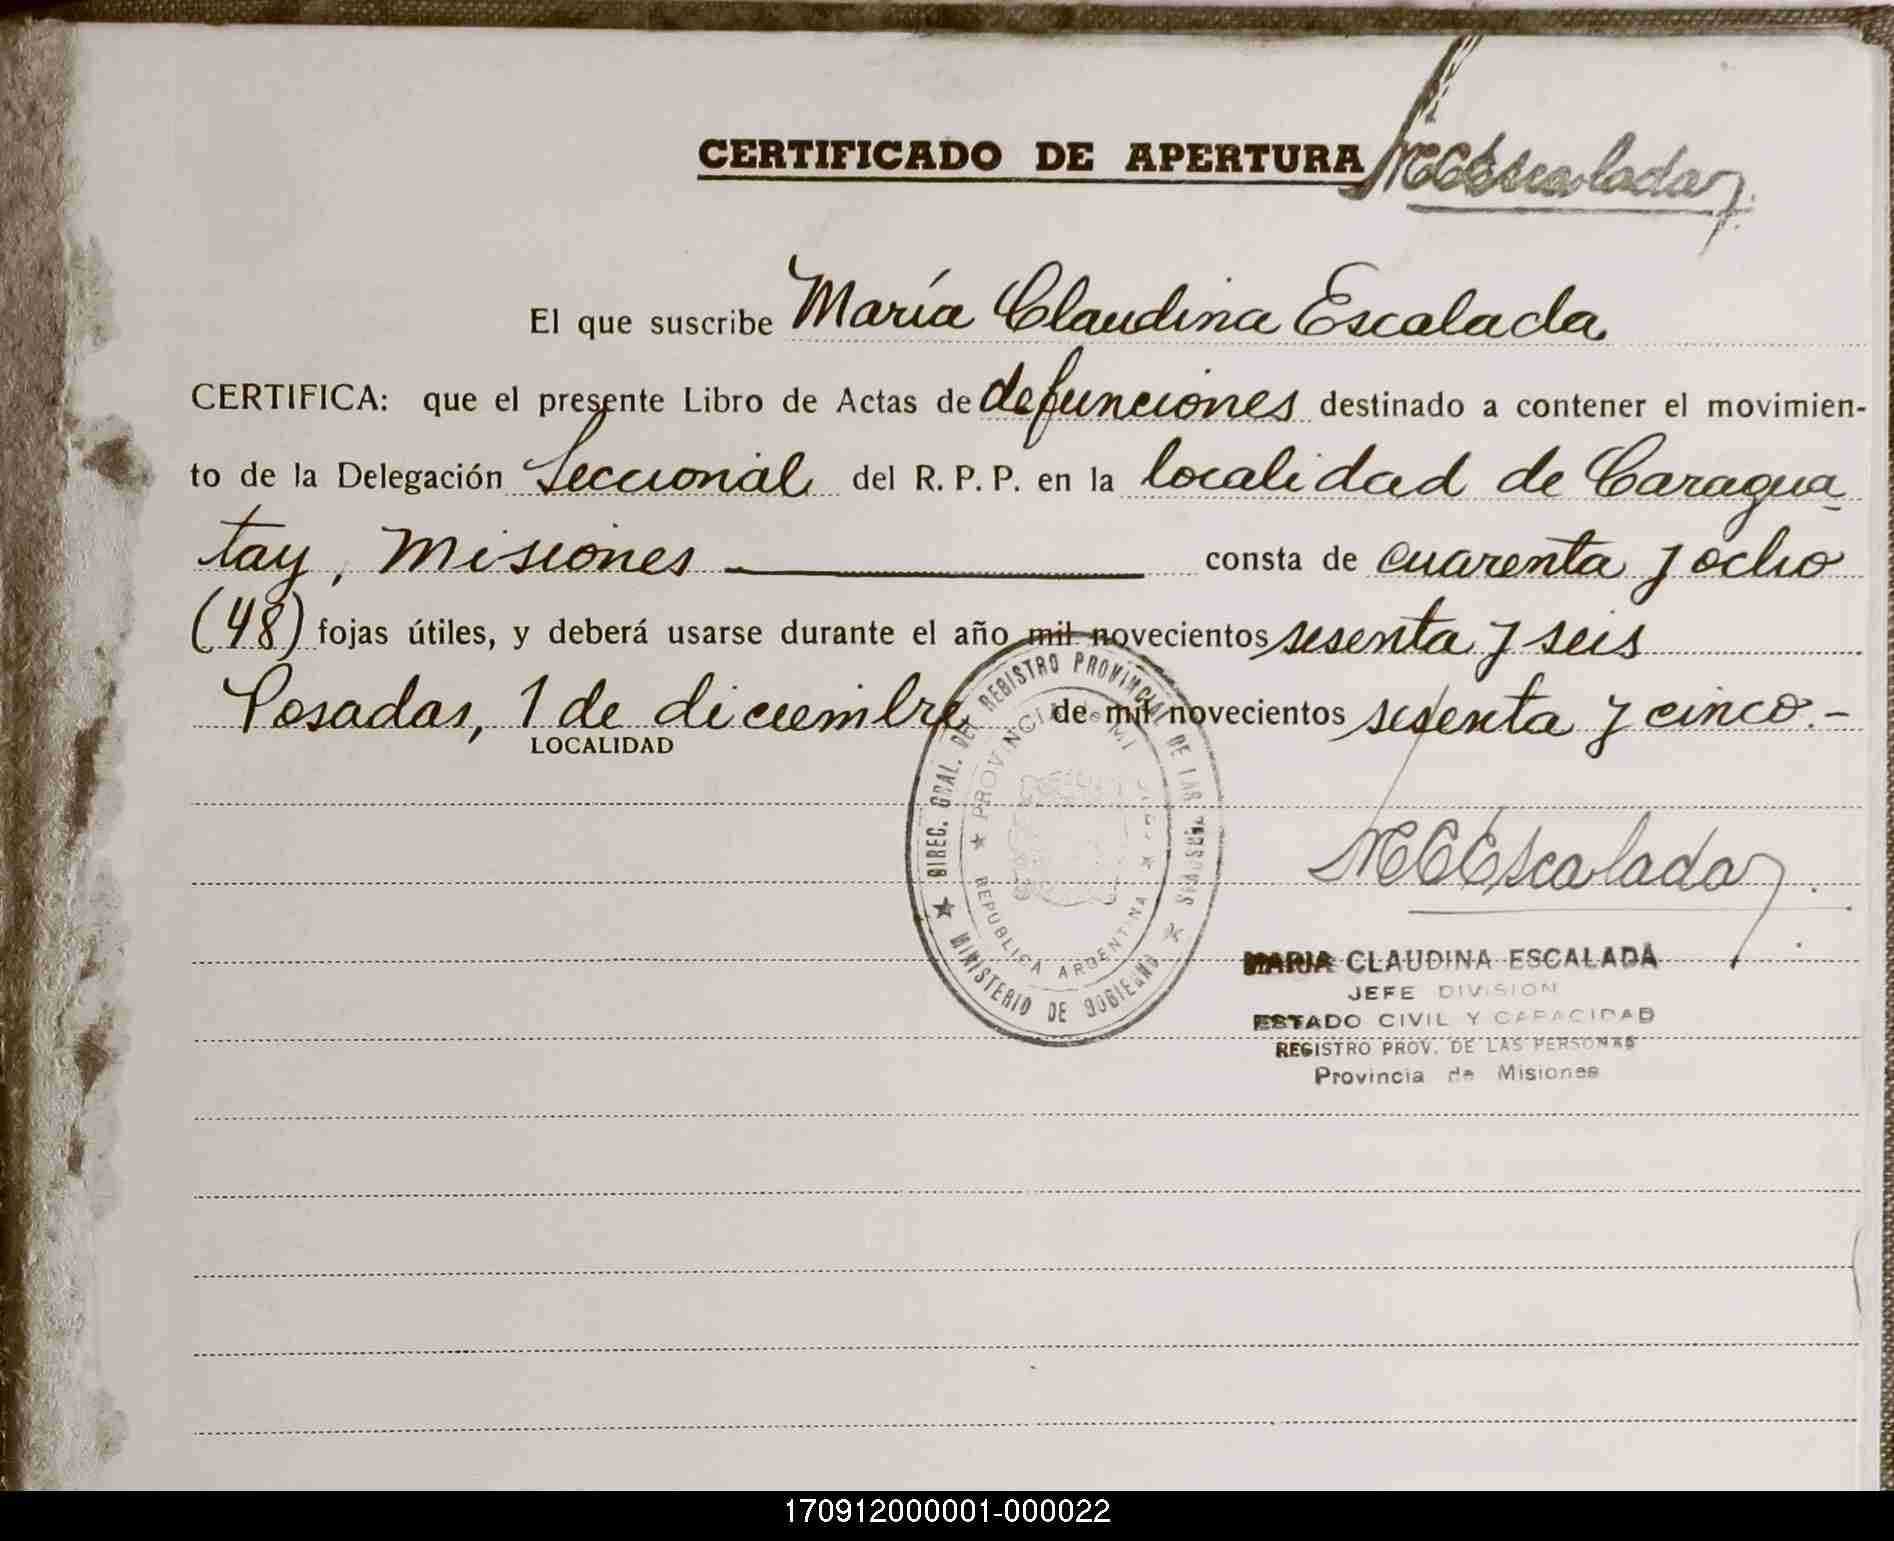 CERTIFICADO DE APERTURA MCEscalada
El que suscribe María Claudina Escalada
CERTIFICA: que el presente Libro de Actas de defunciones destinado a contener el movimien-
to de la Delegación Seccional del R. P. P. en la localidad de Caragua
tay, Misiones consta de cuarenta y ocho
(48) fojas útiles, y deberá usarse durante el año mil novecientos sesenta y seis
Posadas, 1 de diciembre de mil novecientos sesenta y cinco.-
LOCALIDAD
DIREC. GRAL. DEL REGISTRO PROVINCIAL DE LAS PERSONAS
★ MINISTERIO DE GOBIERNO ★
★ PROVINCIA DE MISIONES ★
REPUBLICA ARGENTINA
MCEscalada
MARIA CLAUDINA ESCALADA
JEFE DIVISION
ESTADO CIVIL Y CAPACIDAD
REGISTRO PROV. DE LAS PERSONAS
Provincia de Misiones
170912000001-000022